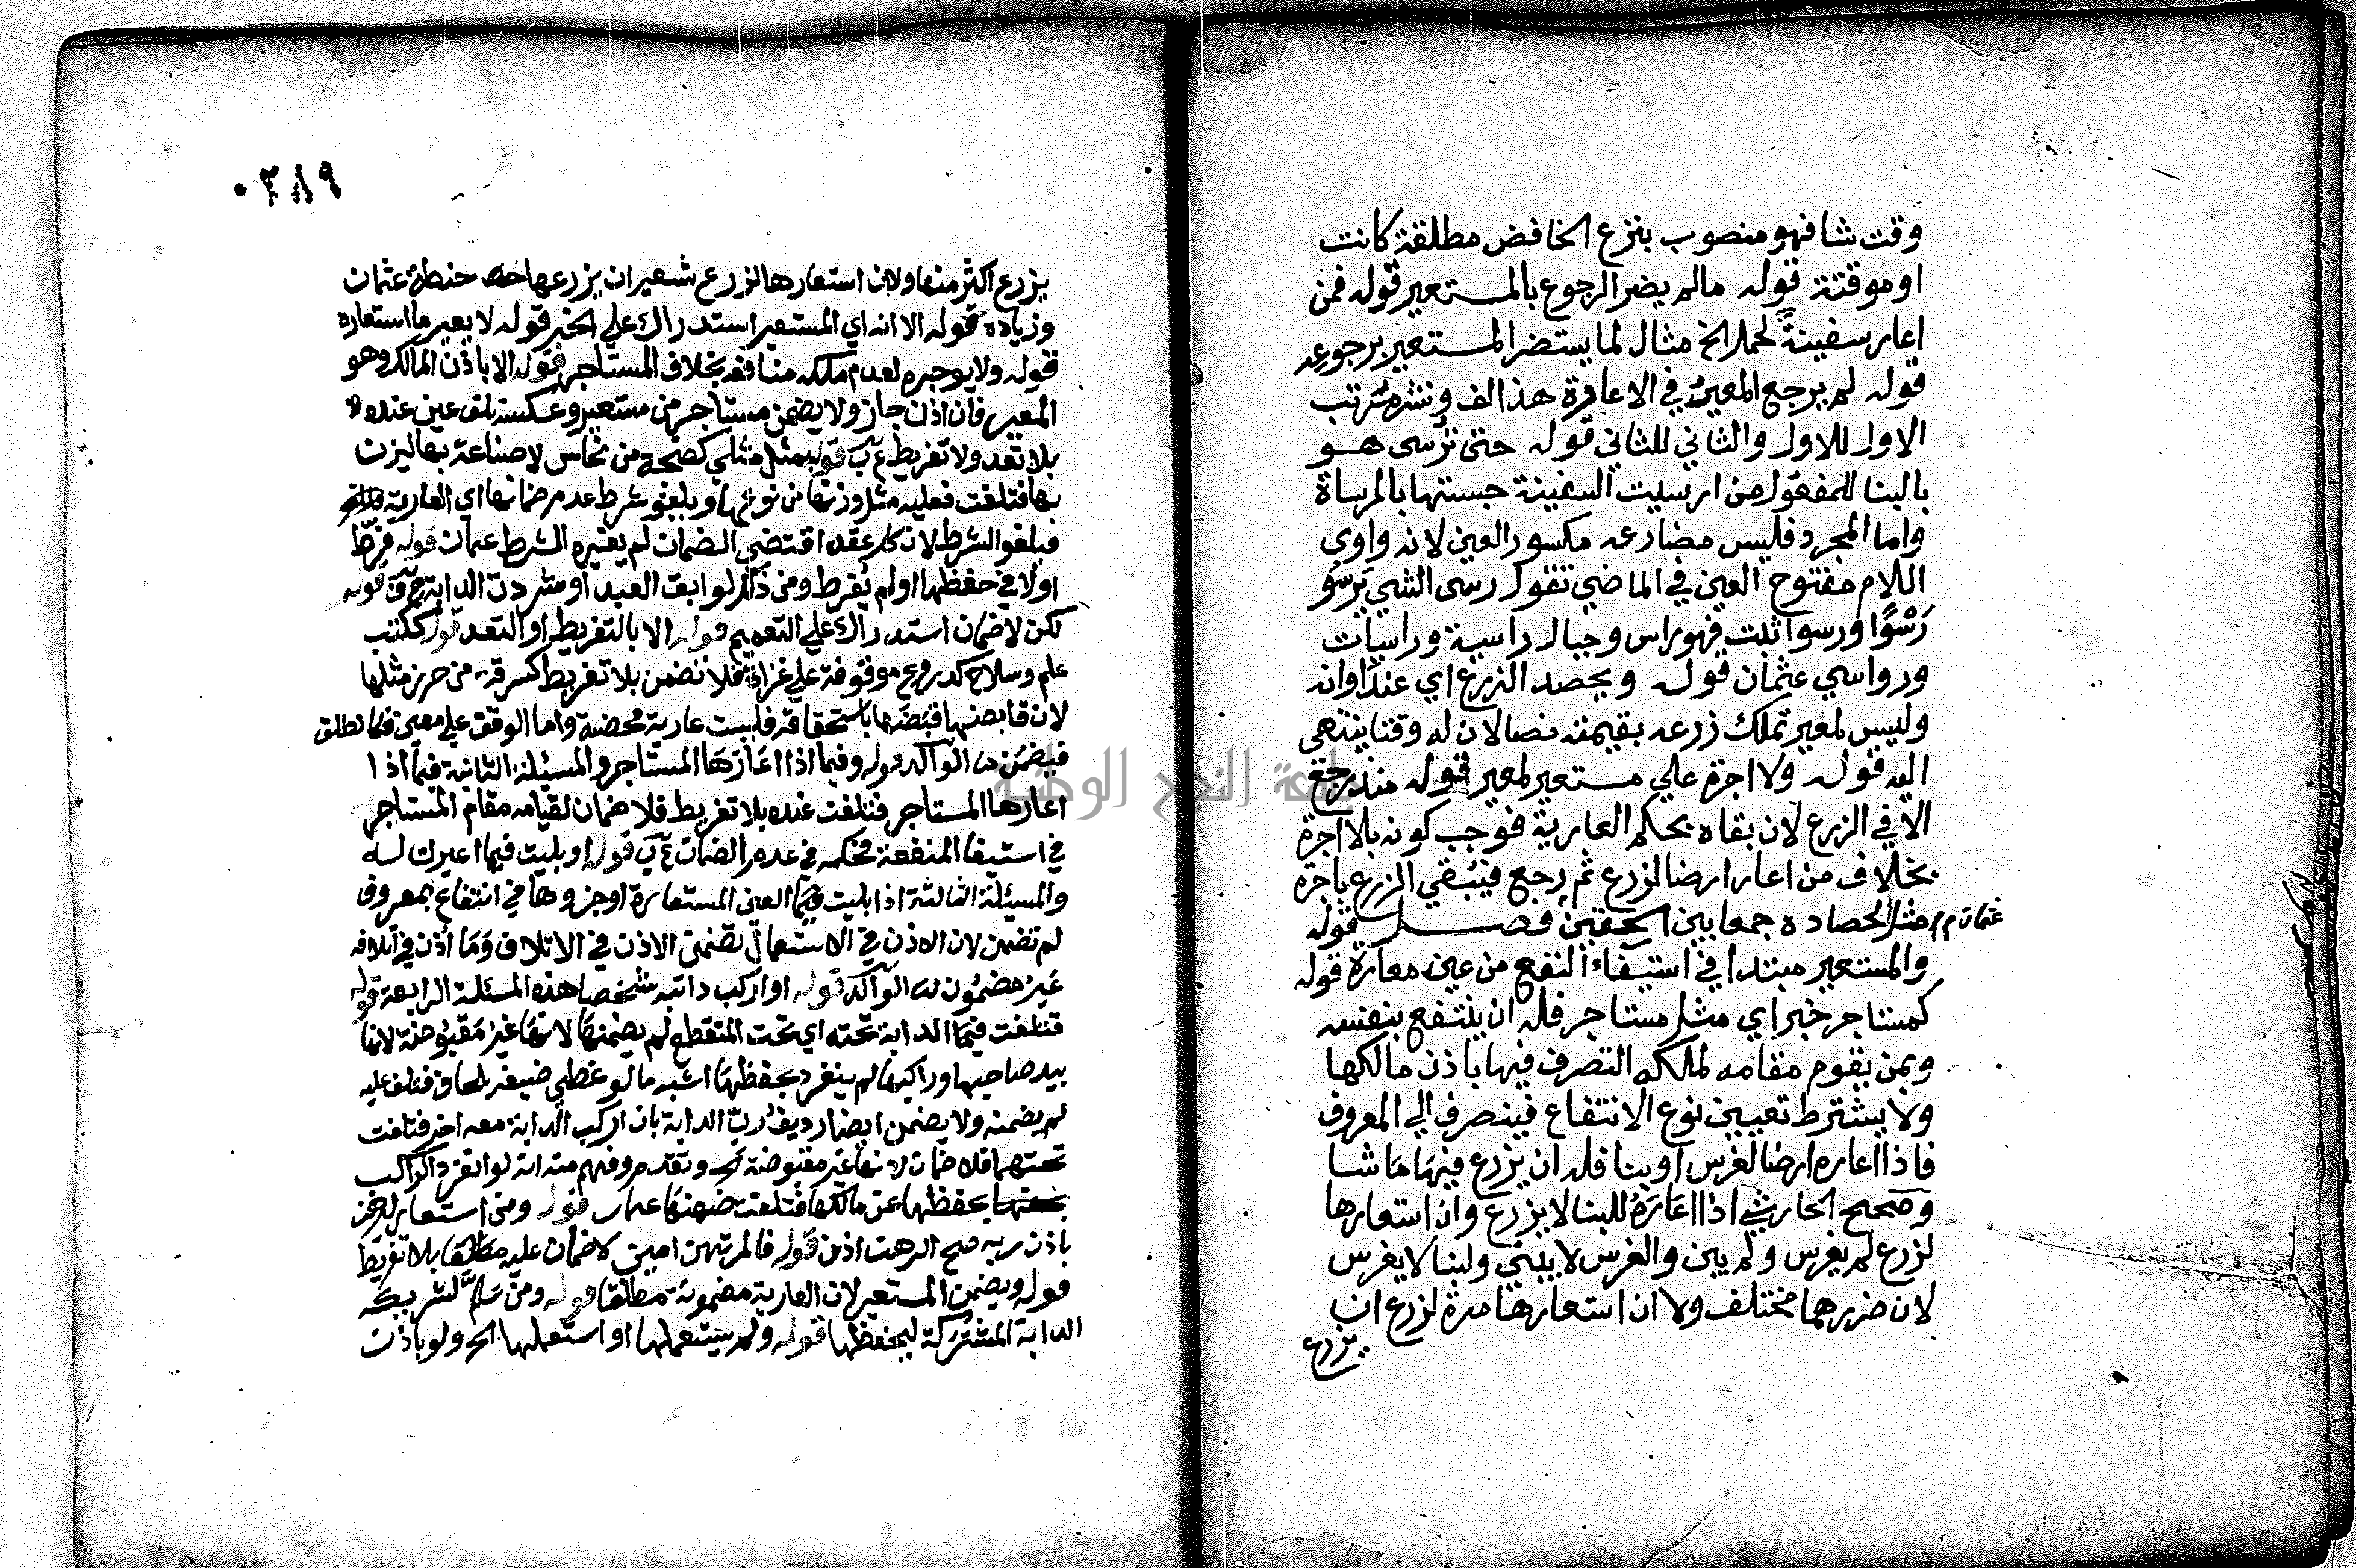 وقت شا فهو منصوب بنزع الخافض مطلقة كانت
او موقتة قوله مالم يضر الرجوع بالمستعير قوله فمن
اعار سفينة لحمل الخ مثال لما يستضر المستعير برجوعه
قوله لم يرجع المعير في الاعافرة هذا لف ونشر مرتب
الاول للاول والثاني للثاني قوله حتى ترسى هو
بالبنا للمفعول من ارسيت السفينة حبستها بالمرساة
واما المجرد فليس مضارعه مكسور العين لانه واوى
اللام مفتوح العين في الماضي تقول رسى الشي يرسو
رَسْوًا ورسوا ثبت فهو راس وجبال راسية وراسيات
ورواسي عثمان قوله ويحصد الزرع اي عند اوانه
وليس لمعير تملك زرعه بقيمته نصا لان له وقتا ينتهى
اليه قوله ولا اجرة علي مستعير لمعير قوله منذ رجع
الا في الزرع لان بقاه بحكم العارية فوجب كونه بلا اجرة
بخلاف من اعار ارضا لزرع ثم رجع فيبقي الزرع باجرة
مثل لحصاده جمعا بين الحقين فصل قوله
عثمان م م
والمستعير مبتدا في استيفاء النفع من عين معارة قوله
كمستاجر خبر اي مثل مستاجر فله ان ينتفع بنفسه
وبمن يقوم مقامه لملكه التصرف فيها باذن مالكها
ولا يشترط تعيين نوع الانتفاع فينصرف الي المعروف
فاذا اعاره ارضا لغرس او بنا فله ان يزرع فيها ما شا
وصحيح الحارشي اذا اعاره للبنا لا يزرع وان استعارها
لزرع لم يغرس ولم يبن والغرس لا يبني ولبنا لا يغرس
لان ضررهما مختلف ولا ان استعارها مدة لزرع ان
يزرع
٠٣٨٩
يزرع اكثر منها ولا ان استعارها لزرع شعير ان يزرعها حنطة عثمان
وزياده قوله الا انه اي المستعير استدراك علي الخبر قوله لا يعير ما استعاره
قوله ولا يوجره لعدم ملكه منافعه بخلاف المستاجر قوله الا باذن المالك وهو
المعير فان اذن جاز ولا يضمن مستاجر من مستعير وعكسه تلف عين عنده
بلا تعد ولا تفريط قوله بمثل مثلي كصنجة من نحاس لا صناعة بها ليزن
بها فتلفت فعليه مثل وزنها من نوعها ويلغو شرط عدم ضمانها اي العارية
فيلغو الشرط لان كل عقد اقتضى الضمان لم يغيره الشرط عثمان قوله فرّط
اولا في حفظها او لم يفرط ومن ذلك لو ابق العبد او شردت الدابة قوله
لكن لا ضمان استدراك علي التعميم قوله الا بالتفريط او التعد قوله ككتب
علم وسلاح كدروع موقوفة علي غزاة فلا تضمن بلا تفريط كسرقة من حرز مثلها
لان قابضها قبضها باستحقاقه فليست عارية محضة واما الوقف علي معين فكالطلق
فيضمن الوالد قوله وفيما اذا اعارها المستاجر والمسئلة الثانية فيما اذا
اعارها المستاجر فتلفت عنده بلا تفريط فلا ضمان لقيامه مقام المستاجر
في استيفا المنفعة فحكمه في عدم الضمان قوله او بليت فيما اعيرت له
والمسئلة الثالثة اذا بليت فيما العين المستعارة اوجزوها في انتفاع بمعروف
لم تضمن لان الاذن في الاستعمال تضمن الاذن في الاتلاف وما اذن في اتلافه
غير مضمون الوالد قوله او اركب دابته شخصا هذه المسئلة الرابعة قوله
فتلفت فيما الدابة تحته اي تحت المنقطع لم يضمنها لانها غير مقبوضة لانها
بيد صاحبها وراكبها لم ينفرد بحفظها اشبه ما لو غطي ضيفه بلحاف فتلف عليه
لم يضمنه ولا يضمن ايضا رديف ربّ الدابة بان اركب الدابة معه اخر فتلفت
تحتهما فلا ضمان لانها غير مقبوضة وتقدم وفهم منه انه لو انفرد الراكب
بحفظها عن مالكها فتلفت ضمنها عثمان قوله ومن استعار لرهن
باذن ربه صح الرهن اذن قوله فالمرتهن امين لا ضمان عليه مطلقا بلا تفريط
قوله ويضمن المستعير لان العارية مضمونة مطلقا قوله ومن سَلم لشريكه
الدابة المشتركة ليحفظها قوله ولم يستعملها او استعملها الخ ولو باذن